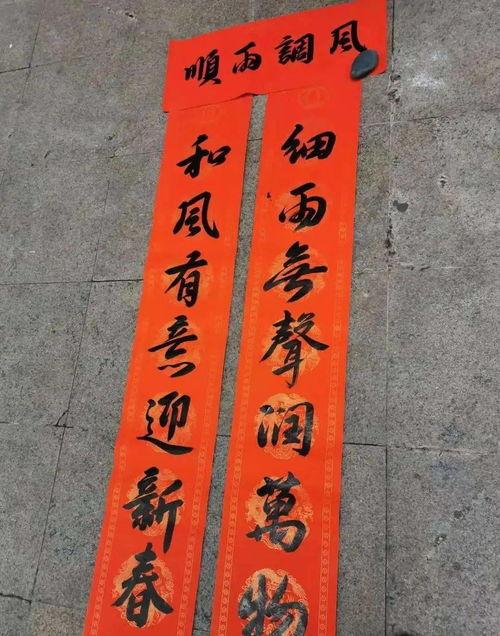 風調雨順
細雨無聲潤萬物
和風有意迎新春